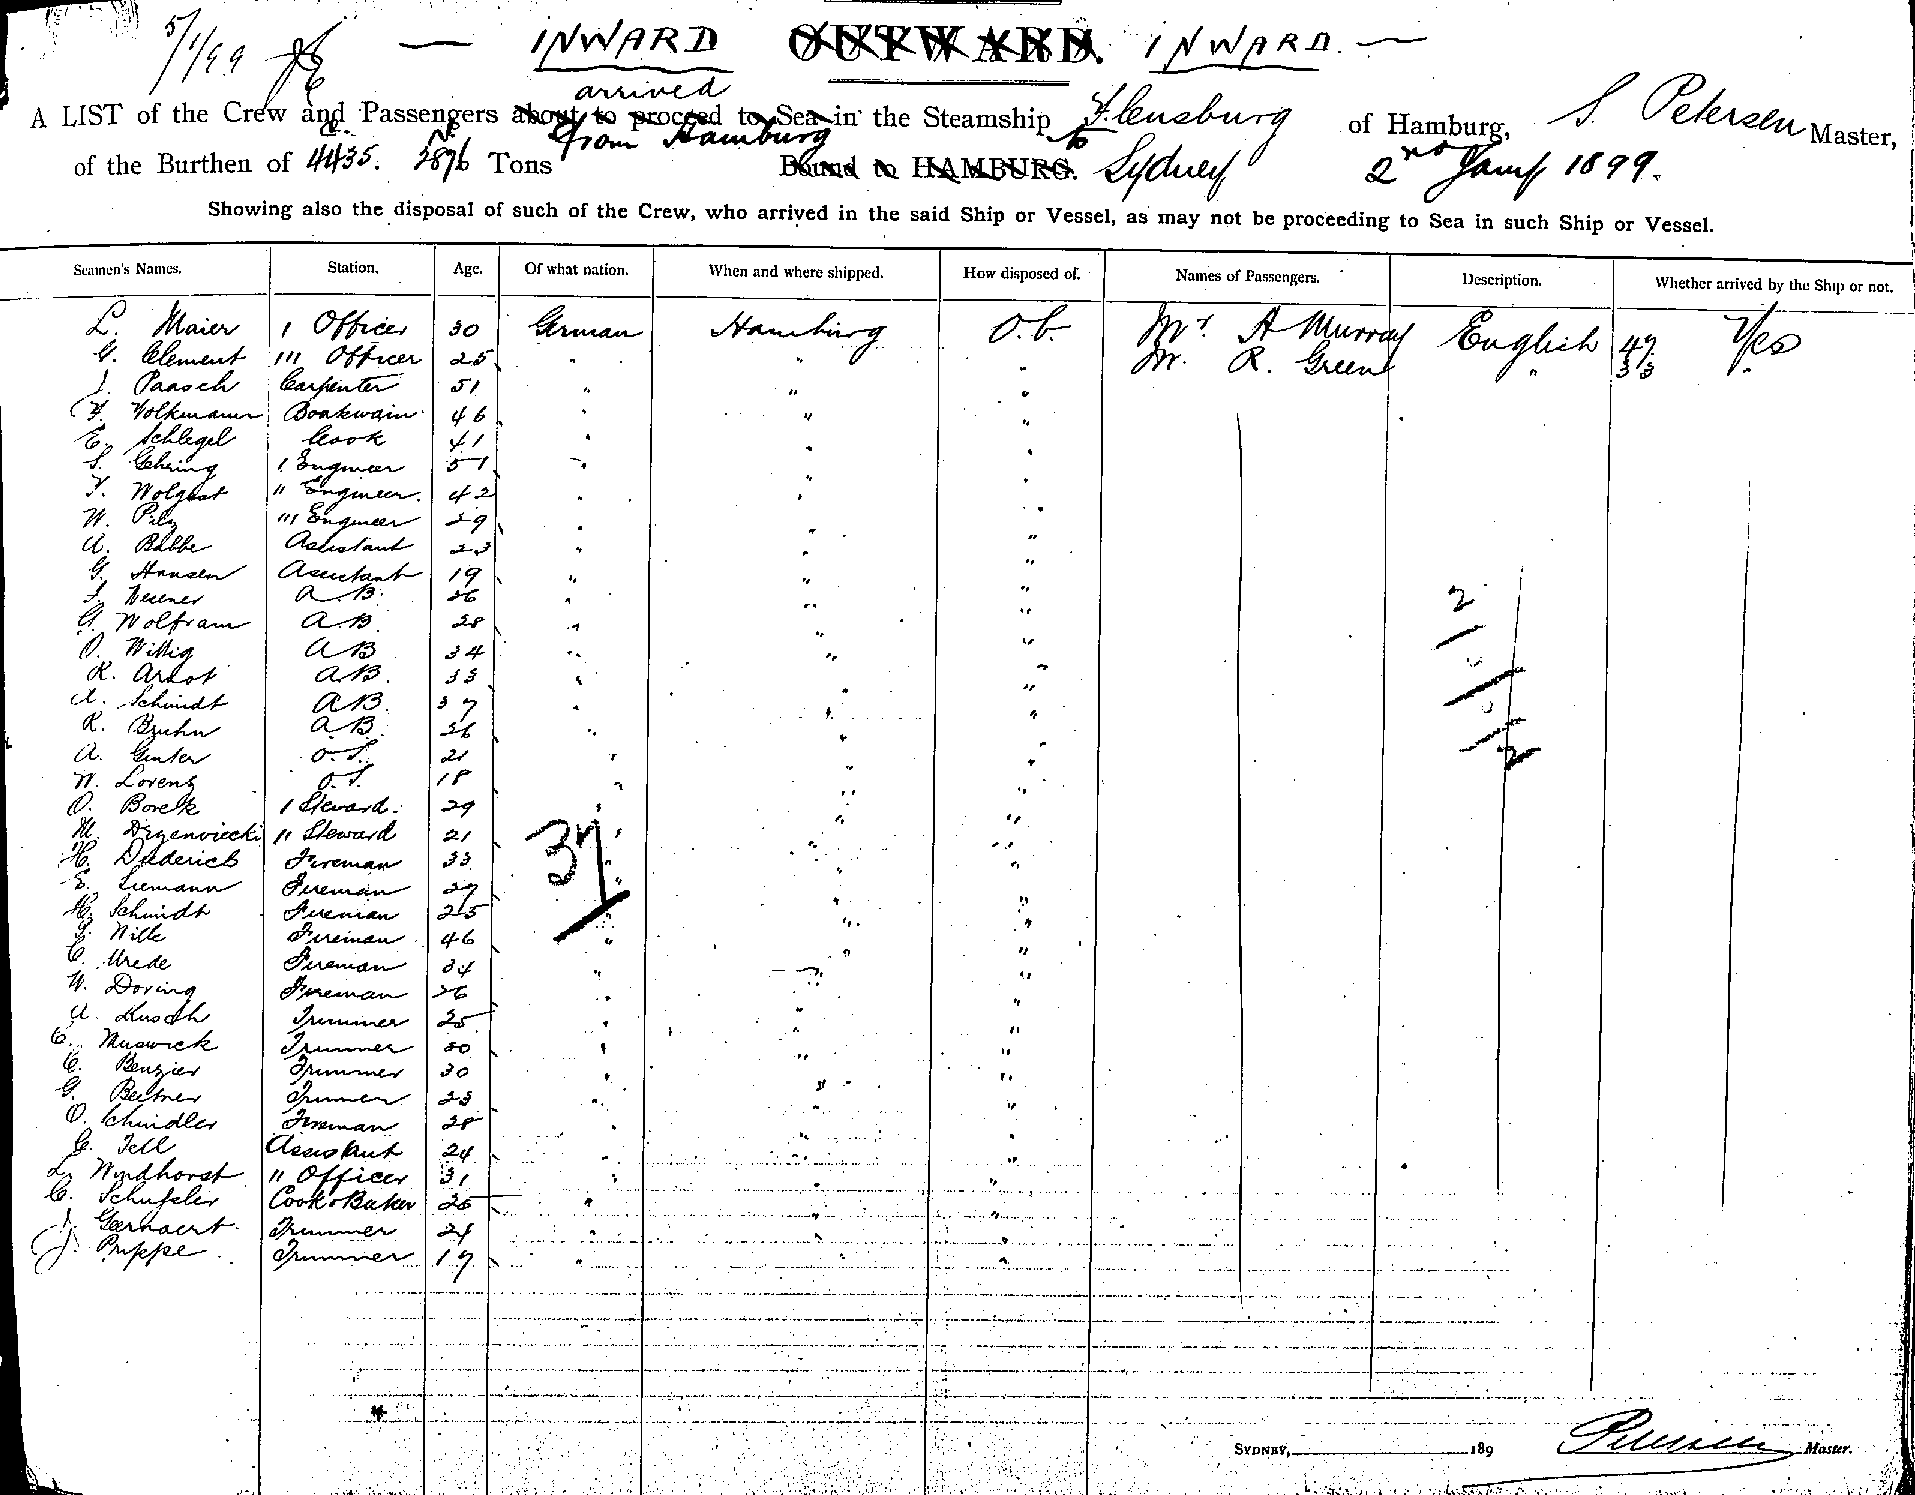 5/1/99
— INWARD OUTWARD. INWARD. —
arrived
A LIST of the Crew and Passengers about to proceed to Sea in the Steamship Flensburg of Hamburg, S. Petersen Master,
from Hamburg to
of the Burthen of 4435. 2876 Tons Bound to HAMBURG. Sydney 2nd Jany 1899.
Showing also the disposal of such of the Crew, who arrived in the said Ship or Vessel, as may not be proceeding to Sea in such Ship or Vessel.
Seamen's Names. Station. Age. Of what nation. When and where shipped. How disposed of. Names of Passengers. Description. Whether arrived by the Ship or not.
L. Maier 1 Officer 30 German Hamburg O.b. Mr A Murray English 47 Yes
G. Clement III Officer 25 " " " Mr. R. Green " 33 "
J. Paasch Carpenter 51 " " "
F. Volkmann Boatswain 46 " " "
E. Schlegel Cook 41 " " "
S. Gehring 1 Engineer 51 " " "
F. Wolgast II Engineer. 42 " " "
W. Pilz III Engineer 29 " " "
A. Babbe Assistant 23 " " "
G. Hansen Assistant 19 " " "
F. Wesener A.B. 26 " " "
G. Wolfram A.B. 28 " " "
O. Wittig A B 34 " " "
R. Arndt A B. 33 " " "
A. Schmidt A B. 37 " " "
R. Bruhn A B. 26 " " "
A. Genter O.S. 21 " " "
W. Lorenz O.S. 18 " " "
O. Borck 1 Steward. 29 " " "
M. II Steward 21 " " "
H. Diederich Fireman 33 " " "
E. Liemann Fireman 27 " " "
H. Schmidt Fireman 25 " " "
Wille Fireman 46 " " "
C. Wrede Fireman 34 " " "
W. Doring Fireman 26 " " "
A. Kusch Trimmer 25 " " "
C. Muswick Trimmer 30 " " "
C. Benzier Trimmer 30 " " "
G. Beitner Trimmer 23 " " "
O. Schindler Fireman 28 " " "
C. Tell Assistant 24 " " "
L. Windhorst II Officer 31 " " "
C. Schussler Cook & Baker 25 " " "
J. Geernaert Trimmer 24 " " "
J. Prippe Trimmer 19 " " "
37
2
2
SYDNEY, 189 Petersen Master.